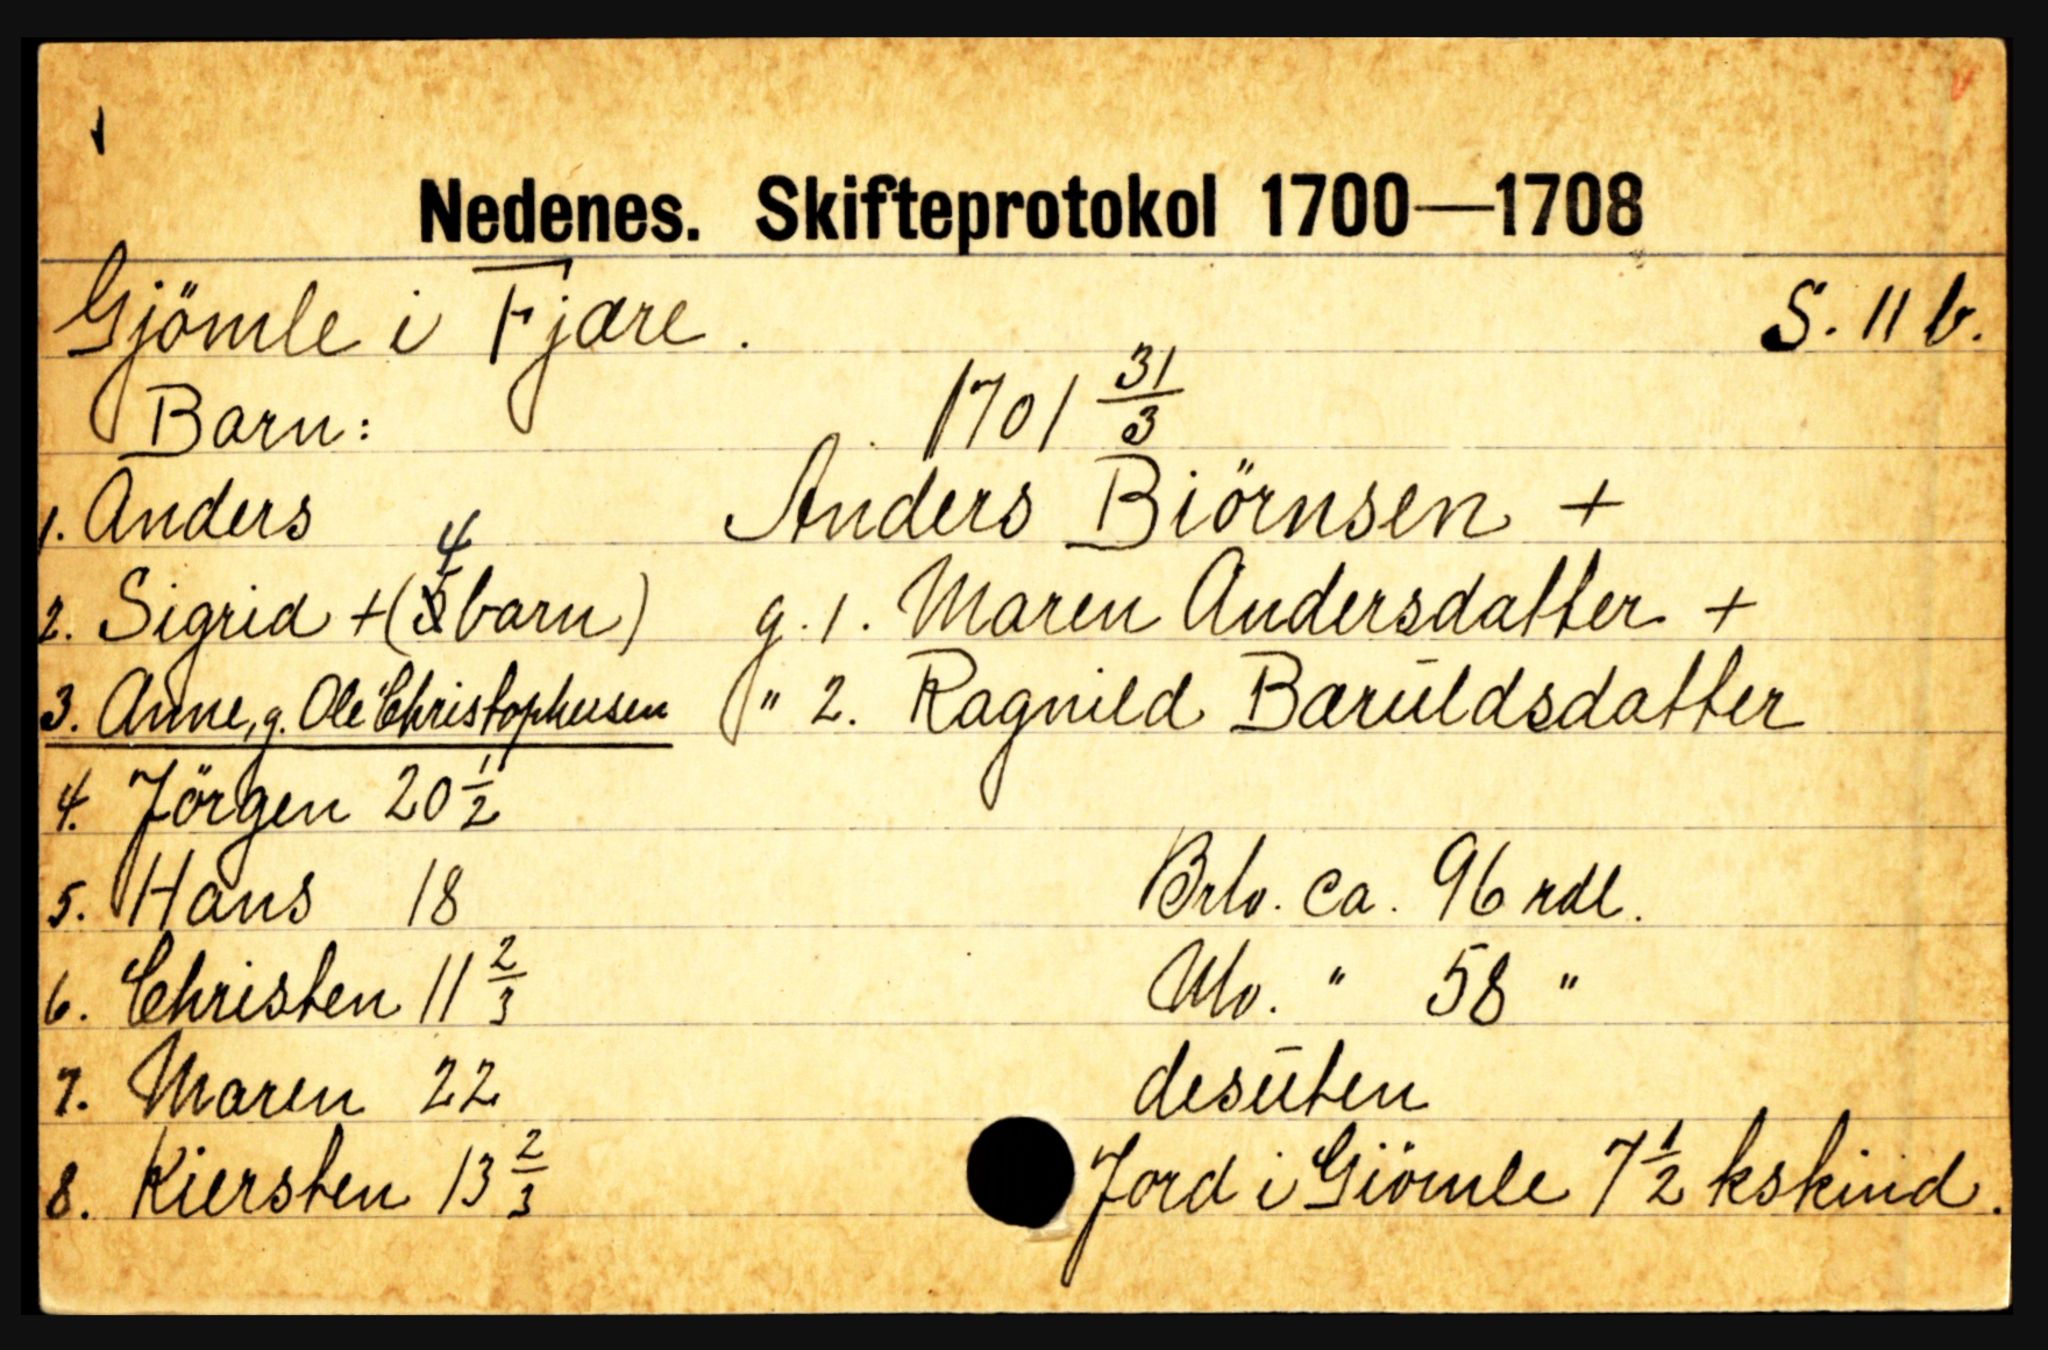 Nedenes. Skifteprotokol 1700—1708
Gjömle i Fjære. S. 11 b.
Barn: 1701 31/3
1. Anders Anders Biörnsen +
2. Sigrid + (4 barn) g. 1. Maren Andersdatter +
3. Anne, g. Ole Christophersen " 2. Ragnild Baruldsdatter
4. Jörgen 20 1/2
5. Hans 18 Brto. ca. 96 rdl.
6. Christen 11 2/3 Nto. " 58 "
7. Maren 22 desuten
8. Kiersten 13 2/3 Jord i Giömle 7 1/2 kskind.